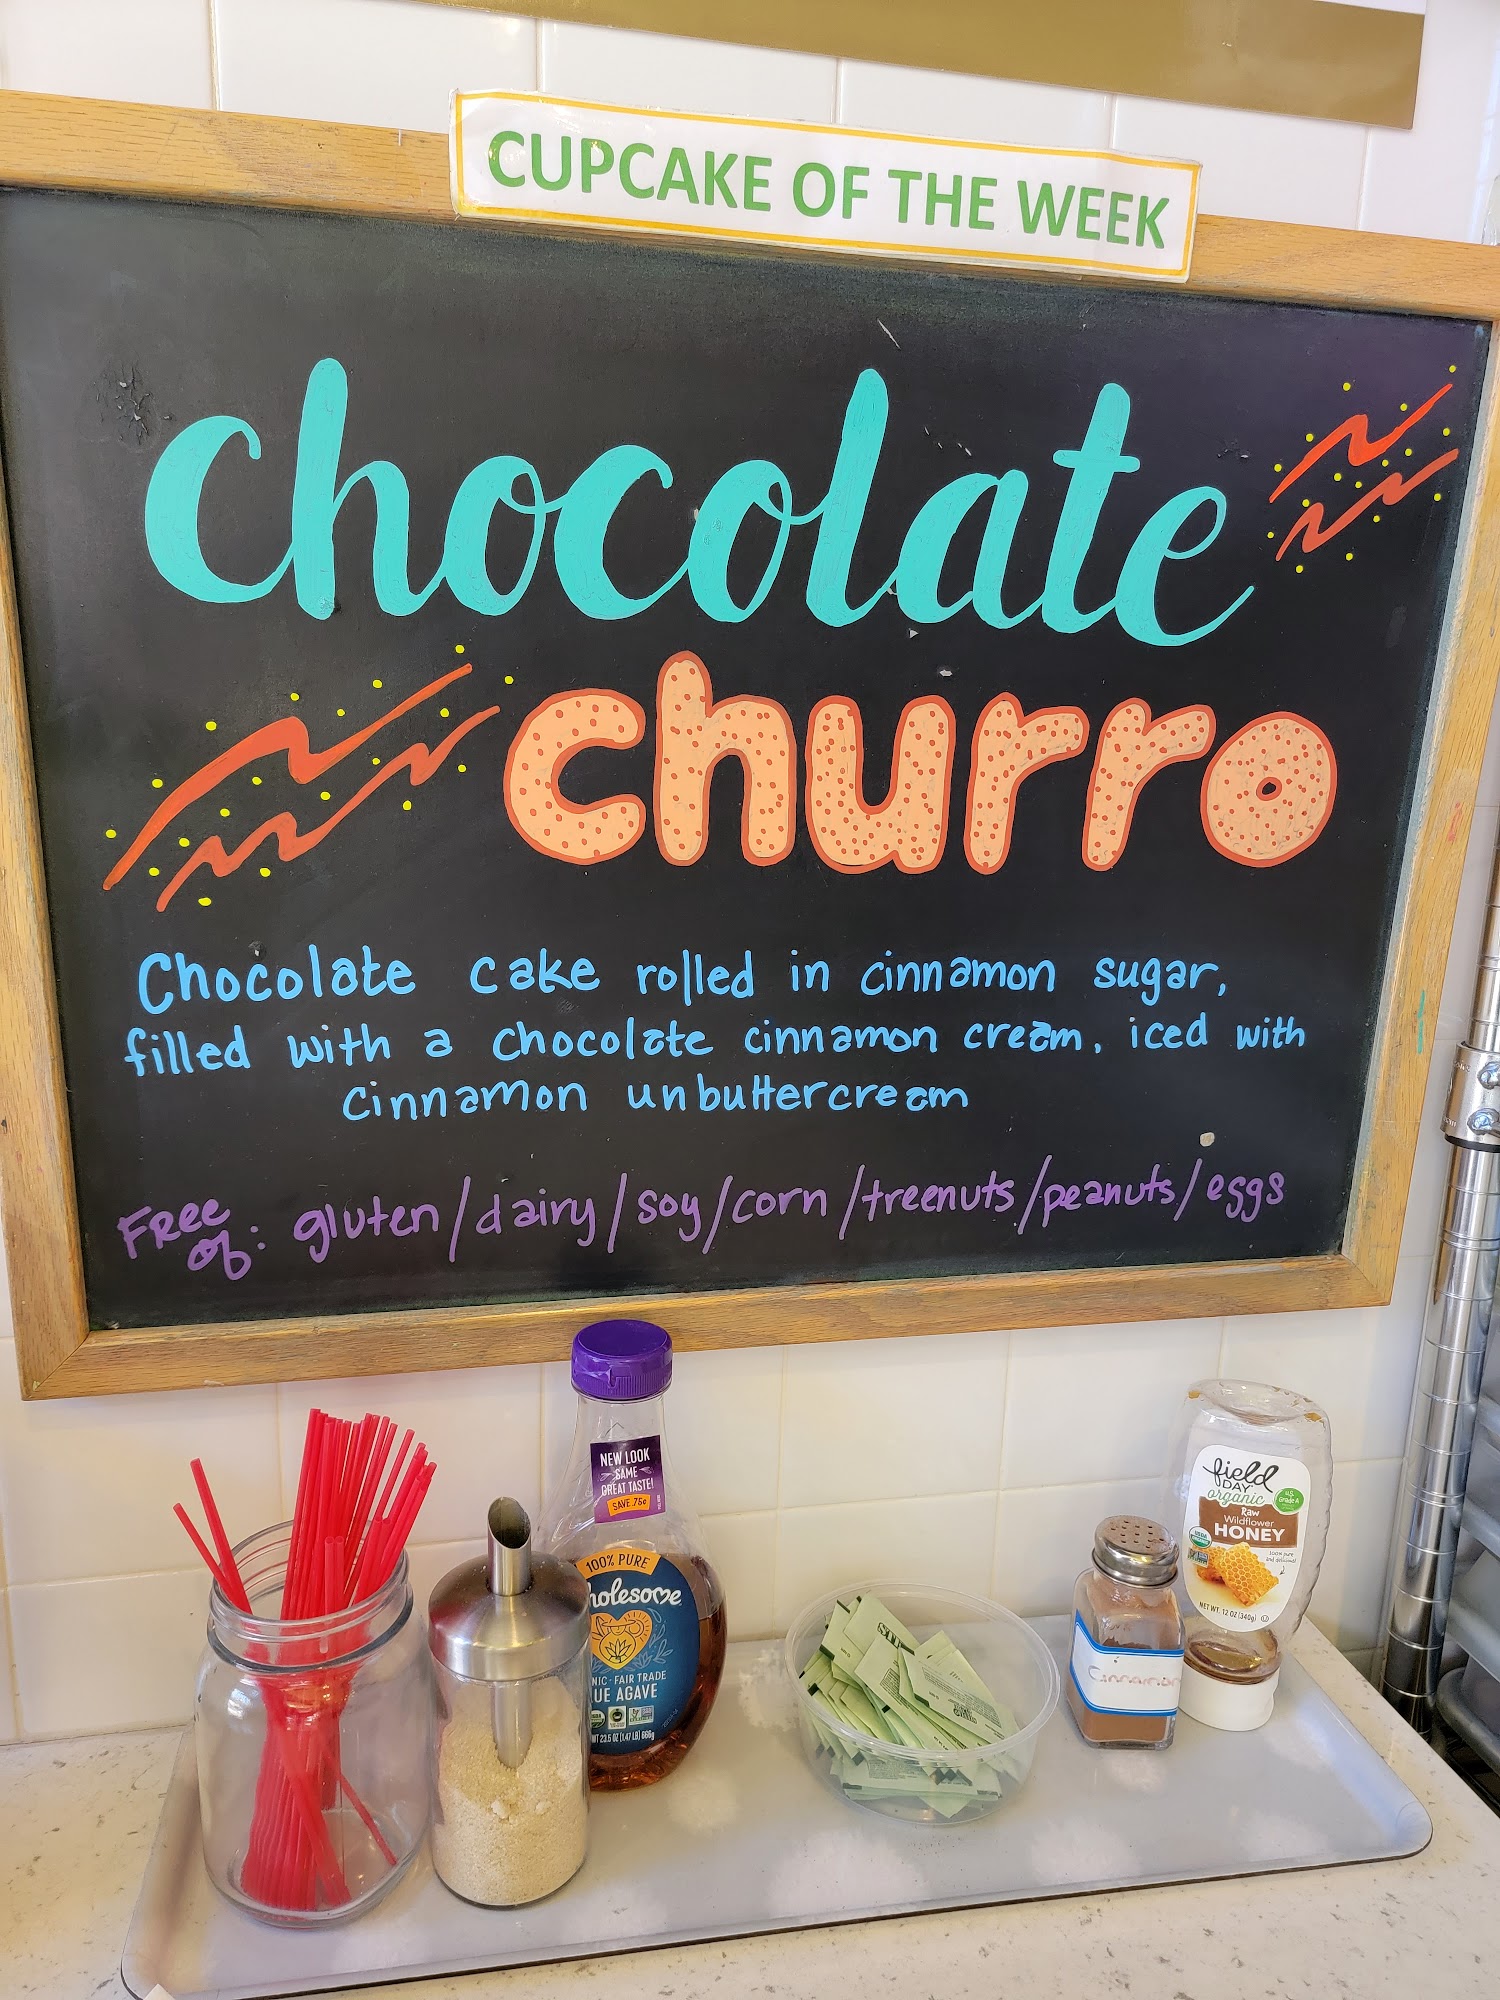 CUPCAKE OF THE WEEK
chocolate
churro
Chocolate cake rolled in cinnamon sugar,
filled with a chocolate cinnamon cream, iced with
cinnamon unbuttercream
Free of: gluten/dairy/soy/corn/treenuts/peanuts/eggs
NEW LOOK
SAME
GREAT TASTE!
SAVE .75¢
100% PURE
holesome
NIC · FAIR TRADE
UE AGAVE
WT 23.5 OZ (1.47 LB) 666g
Cinnamon
field
DAY
organic
U.S.
Grade A
Raw
Wildflower
HONEY
USDA
100% pure
and delicious!
NET WT. 12 OZ (340g)